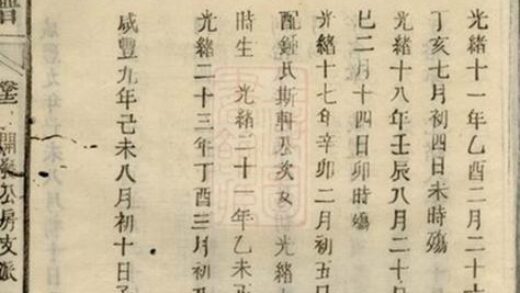 光緒十一年乙酉二月二十
丁亥七月初四日未時殤
光緒十八年壬辰八月二十日
巳二月十四日卯時殤
光緒十七年辛卯二月初五日
配鍾氏斯軒公次女 光緒十
時生 光緒二十一年乙未正
光緒二十三年丁酉三月初
咸豐九年己未八月初十日子
開
公房支派